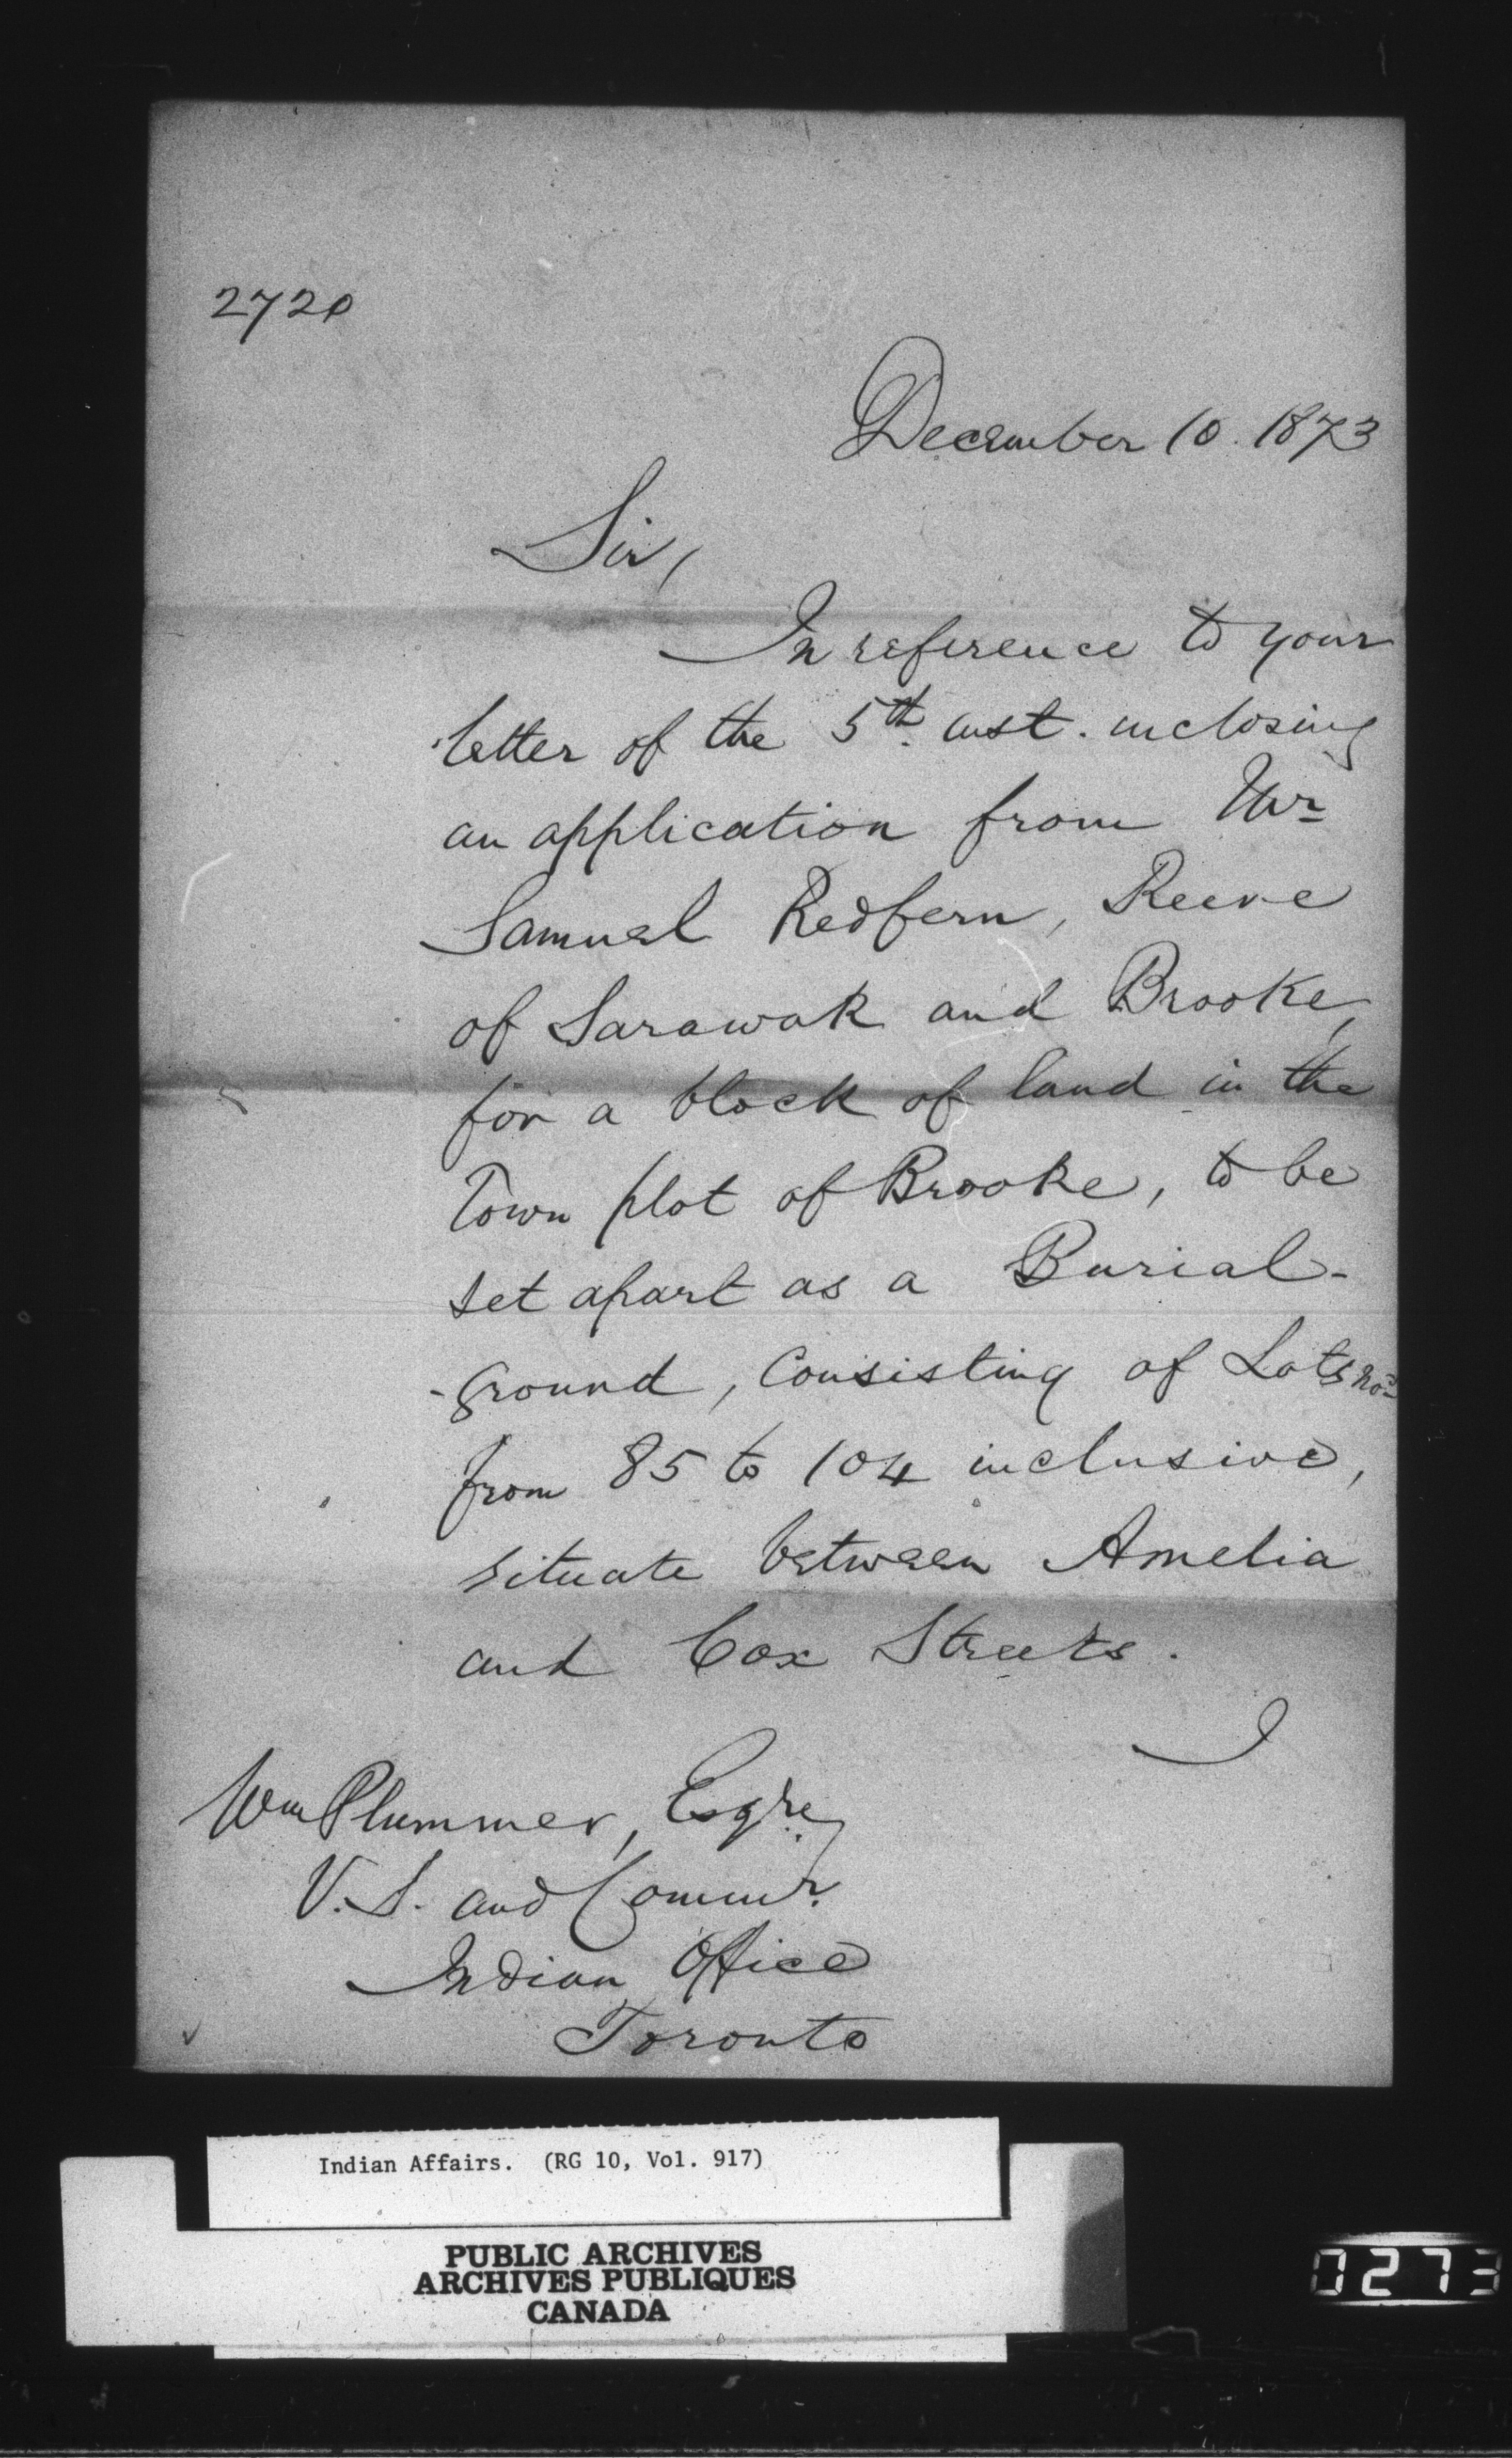 2720
December 10. 1873
Sir,
In reference to your
letter of the 5th inst. inclosing
an application from Mr
Samuel Redfern, Reeve
of Sarawak and Brooke,
for a block of land in the
Town plot of Brooke, to be
set apart as a Burial-
-ground, Consisting of Lots Nos
from 85 to 104 inclusive,
situate between Amelia
and Cox Streets.
I
Wm Plummer, Esqre,
V. S. and Commr.
Indian Office
Toronto
Indian Affairs. (RG 10, Vol. 917)
PUBLIC ARCHIVES
ARCHIVES PUBLIQUES
CANADA
0273